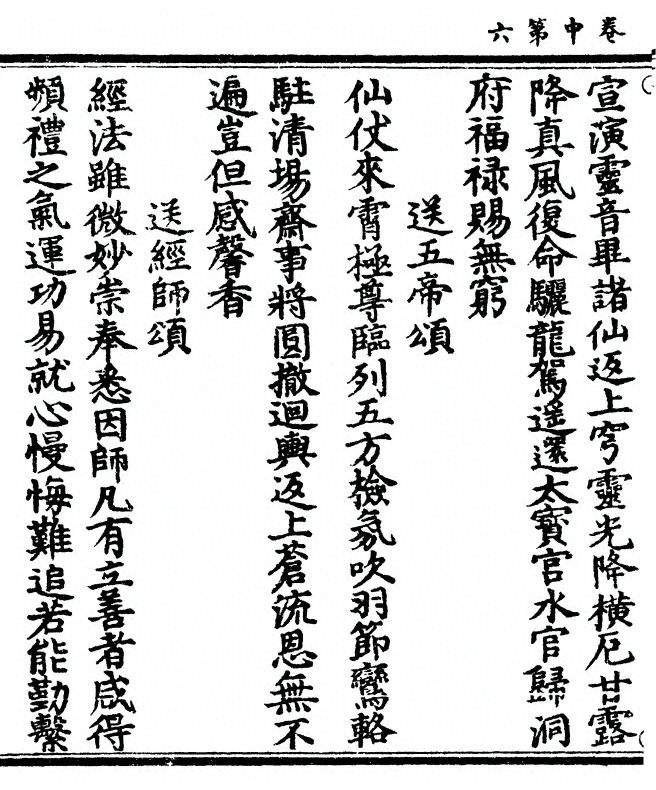 卷中第六
宣演靈音畢諸仙返上穹靈光降橫厄甘露
降真風復命驪龍駕遥還太寶官水官歸洞
府福禄賜無窮
送五帝頌
仙仗來霄極尊臨列五方檢氛吹羽節鸞輅
駐清場齋事將圓撤迴輿返上蒼流恩無不
遍豈但感馨香
送經師頌
經法雖微妙崇奉悉因師凡有立善者咸得
頻禮之氣運功易就心慢悔難追若能勤繫